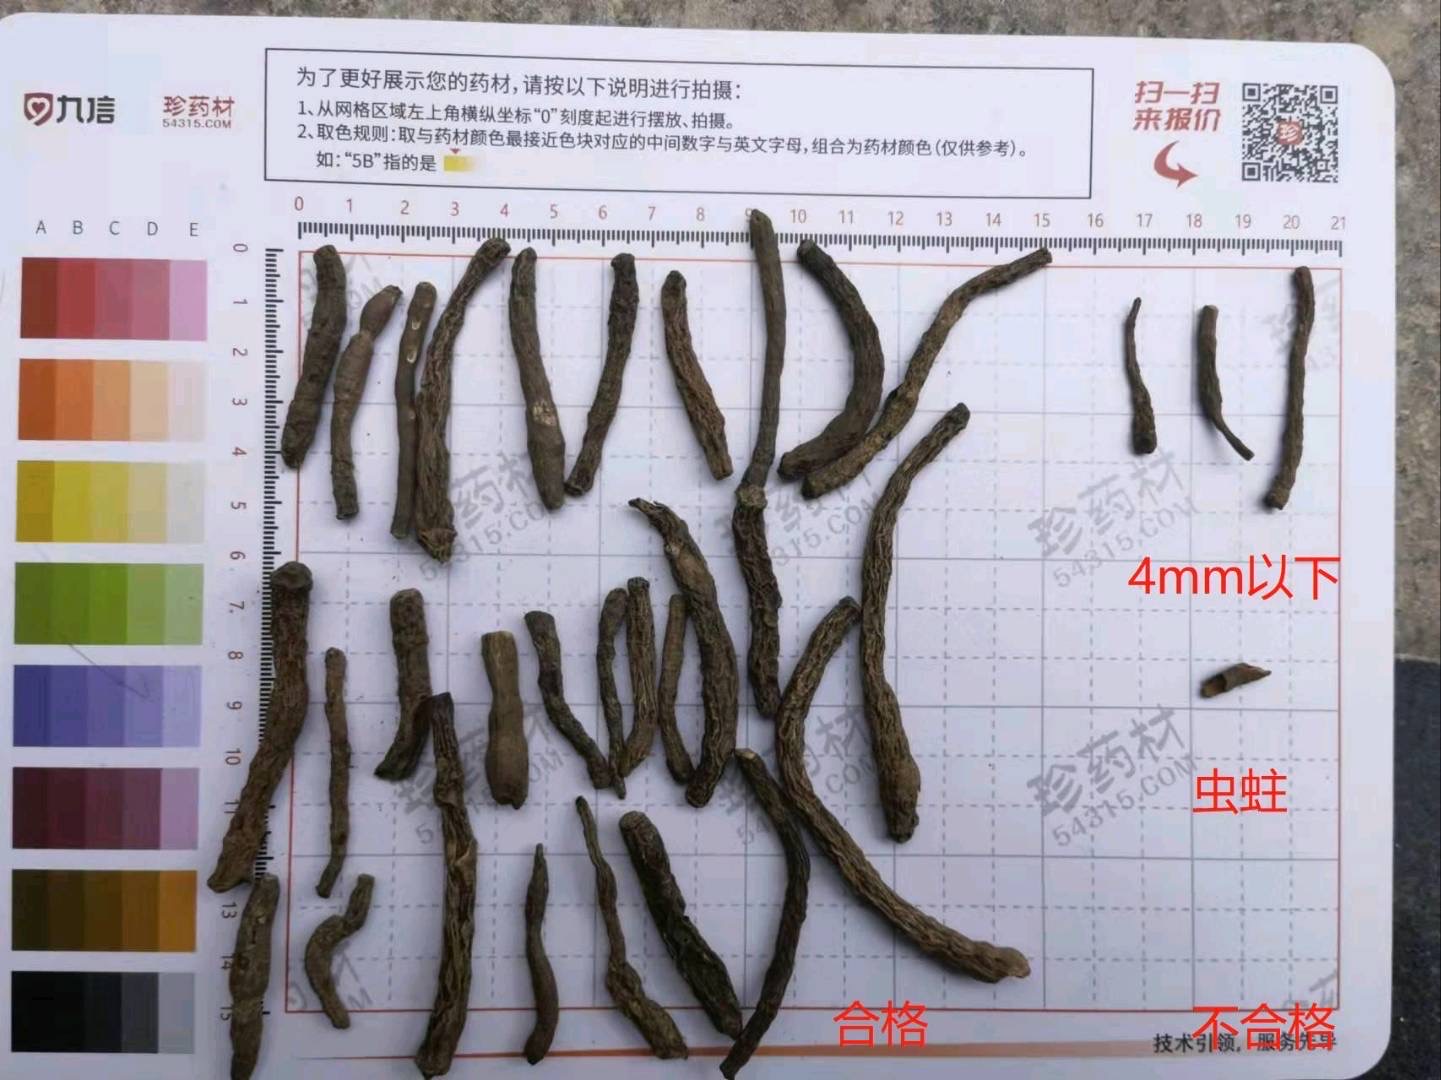 为了更好展示您的药材,请按以下说明进行拍摄:
1、从网格区域左上角横纵坐标“0”刻度起进行摆放、拍摄。
2、取色规则:取与药材颜色最接近色块对应的中间数字与英文字母,组合为药材颜色(仅供参考)。
如:“5B”指的是
九信
珍药材
54315.COM
扫一扫
来报价
珍
A B C D E
0 1 2 3 4 5 6 7 8 9 10 11 12 13 14 15 16 17 18 19 20 21
0
1
2
3
4
5
6
7
8
9
10
11
13
14
15
珍药材
54315.COM
珍药材
54315.COM
4mm以下
虫蛀
合格
不合格
技术引领,服务先导